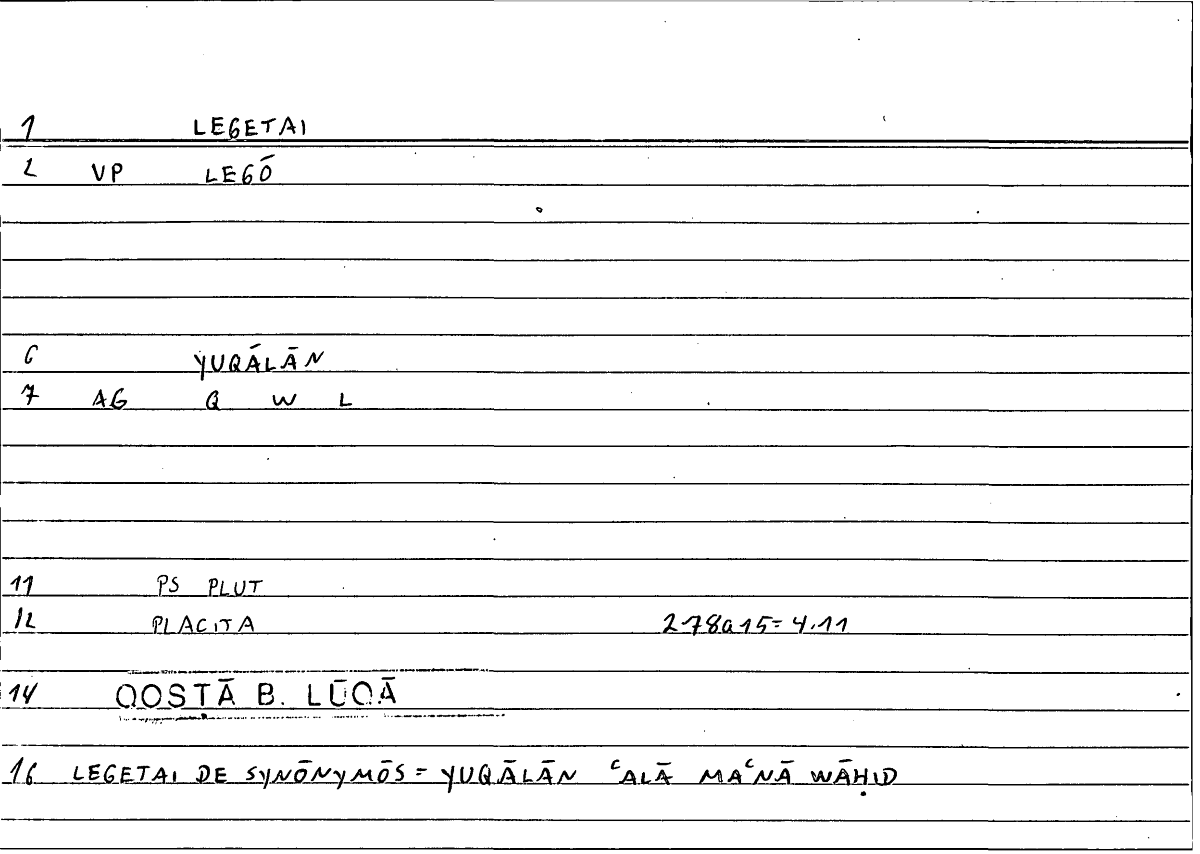 1 LEGETAI
2 VP LEGŌ
6 YUQĀLĀN
7 AG Q W L
11 PS PLUT
12 PLACITA 278a15=4.11
14 QOSTĀ B. LŪQĀ
16 LEGETAI DE SYNŌNYMŌS = YUQĀLĀN ʿALĀ MAʿNĀ WĀḤID